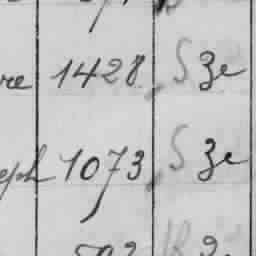 re 1428 S 3e
eph 1073 S 3e